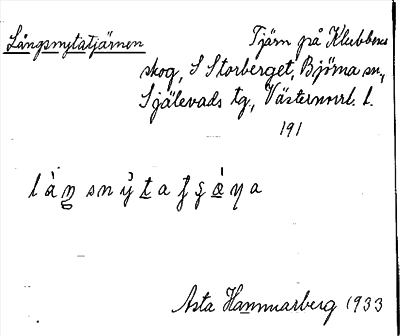 Långsnytatjärnen
Tjärn på Klubbens
skog, S Storberget, Björna sn,
Själevads tg., Västernorrl. l.
191
Asta Hammarberg 1933